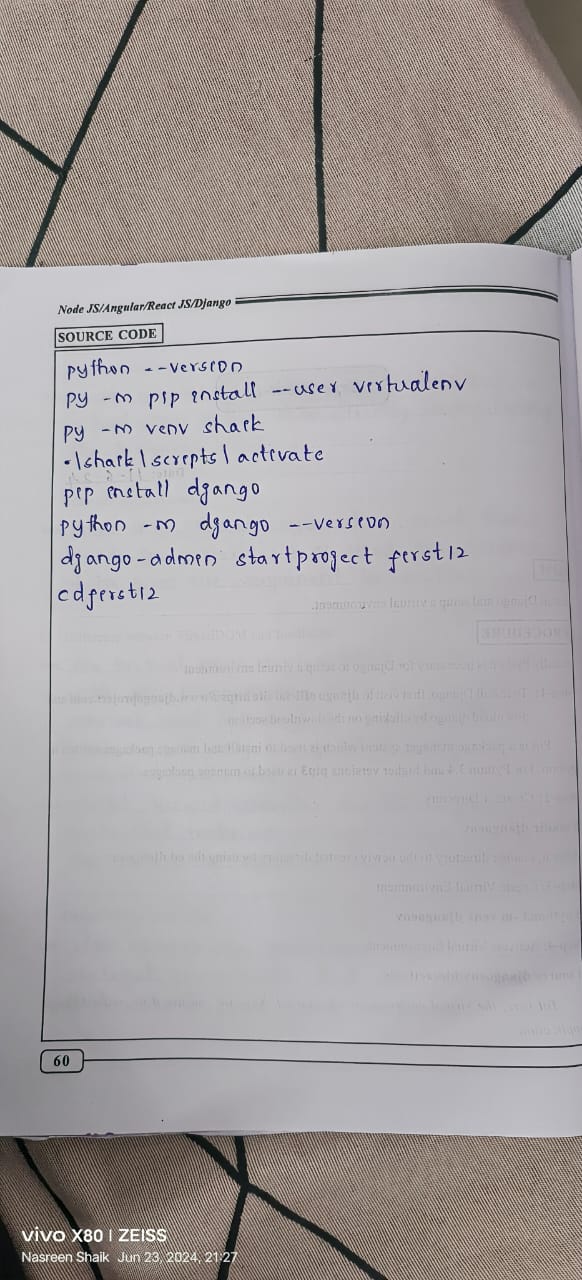 Node JS/Angular/React JS/Django
SOURCE CODE
python --version
py -m pip install --user virtualenv
py -m venv shark
.\shark\scripts\activate
pip install django
python -m django --version
django-admin startproject first12
cdfirst12
60
vivo X80 | ZEISS
Nasreen Shaik Jun 23, 2024, 21:27